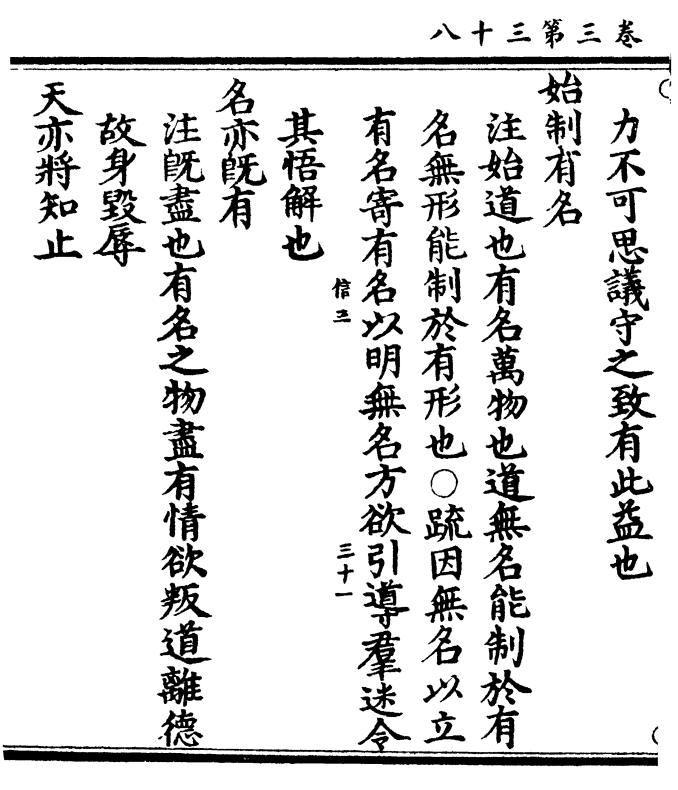 卷三第三十八
力不可思議守之致有此益也
始制有名
注始道也有名萬物也道無名能制於有
名無形能制於有形也○疏因無名以立
有名寄有名以明無名方欲引導羣迷令
信三
三十一
其悟解也
名亦旣有
注旣盡也有名之物盡有情欲叛道離德
故身毀辱
天亦將知止